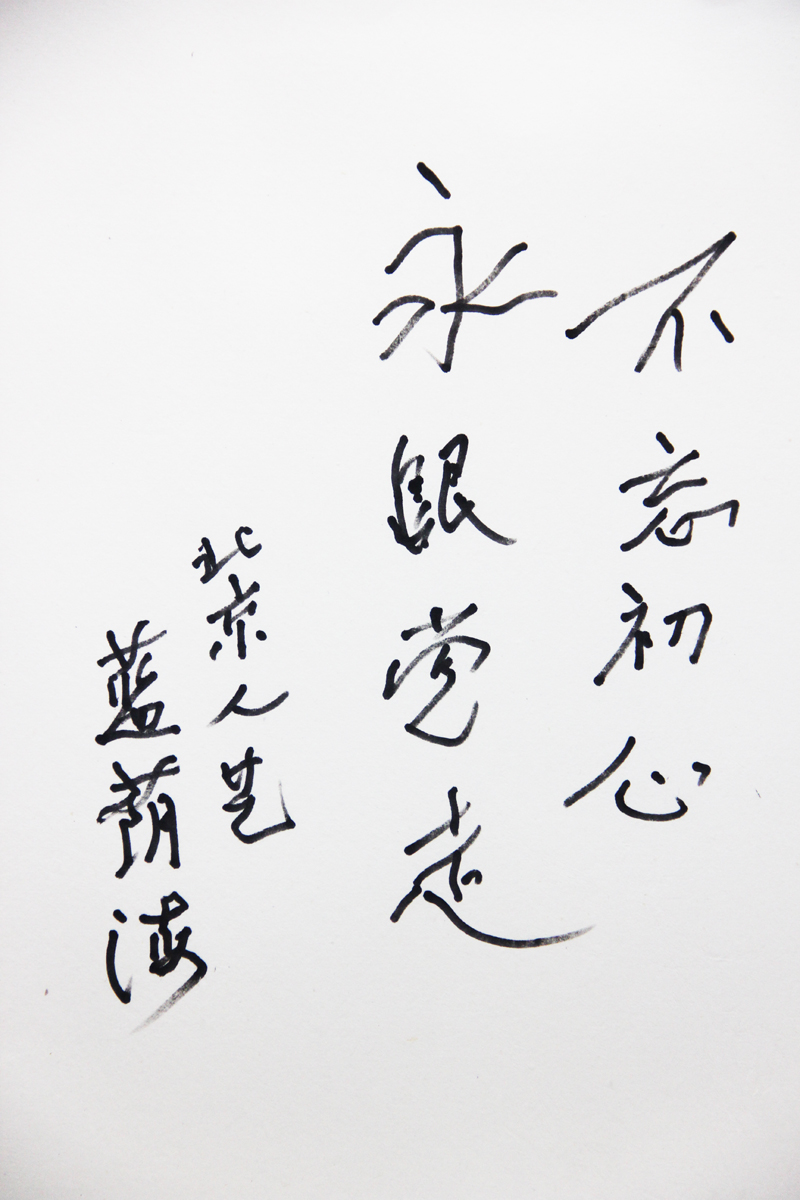 不忘初心
永跟党走
北京人艺
蓝荫海